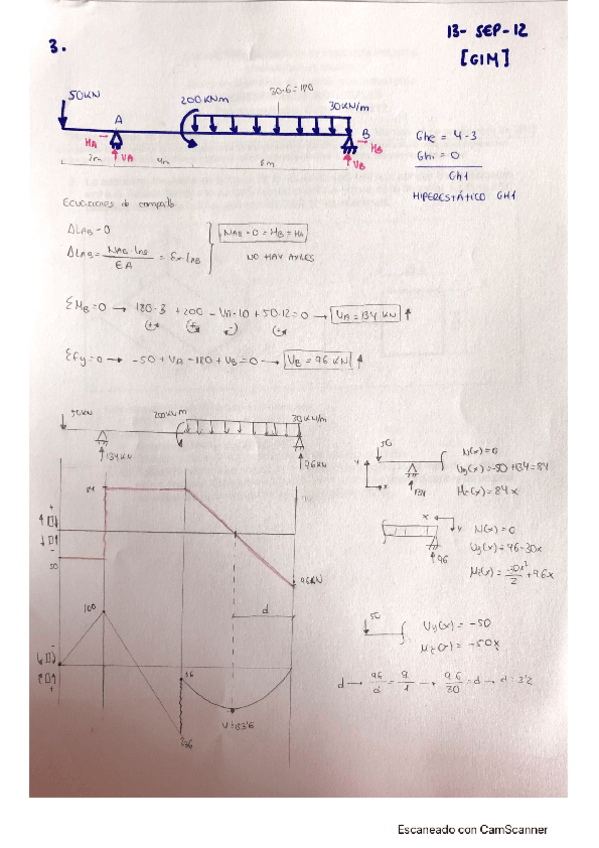 13- SEP-12
3.
[GIM]
50KN
200KNm
30·6=180
30KN/m
A
B
HA
VA
HB
VB
2m
4m
6m
Ghe = 4-3
Ghi = 0
Gh1
HIPERESTÁTICO GH1
ECUACIONES de compatib
ΔLAB=0
ΔLAB= NAB·LAB / EA = Ex·LAB
NAB=0=HB=HA
NO HAY AXILES
ΣMB=0 → 180·3 +200 -VA·10 +50·12=0 → VA=134 KN ↑
(+) (+) (-) (+)
ΣFy=0 → -50+VA-180+VB=0 → VB=96 KN ↑
50KN
200KNm
30KN/m
134KN
96KN
50
134
y
x
N(x)=0
Vy(x)=-50+134=84
Mz(x)=84x
84
+
-
50
96KN
x
y
96
N(x)=0
Vy(x)=96-30x
Mz(x)= -30x²/2 +96x
d
100
50
Vy(x) = -50
Mz(x) = -50x
d → 96/d = q/1 → 96/30 = d → d=3'2
36
V=153'6
236
-
+
Escaneado con CamScanner